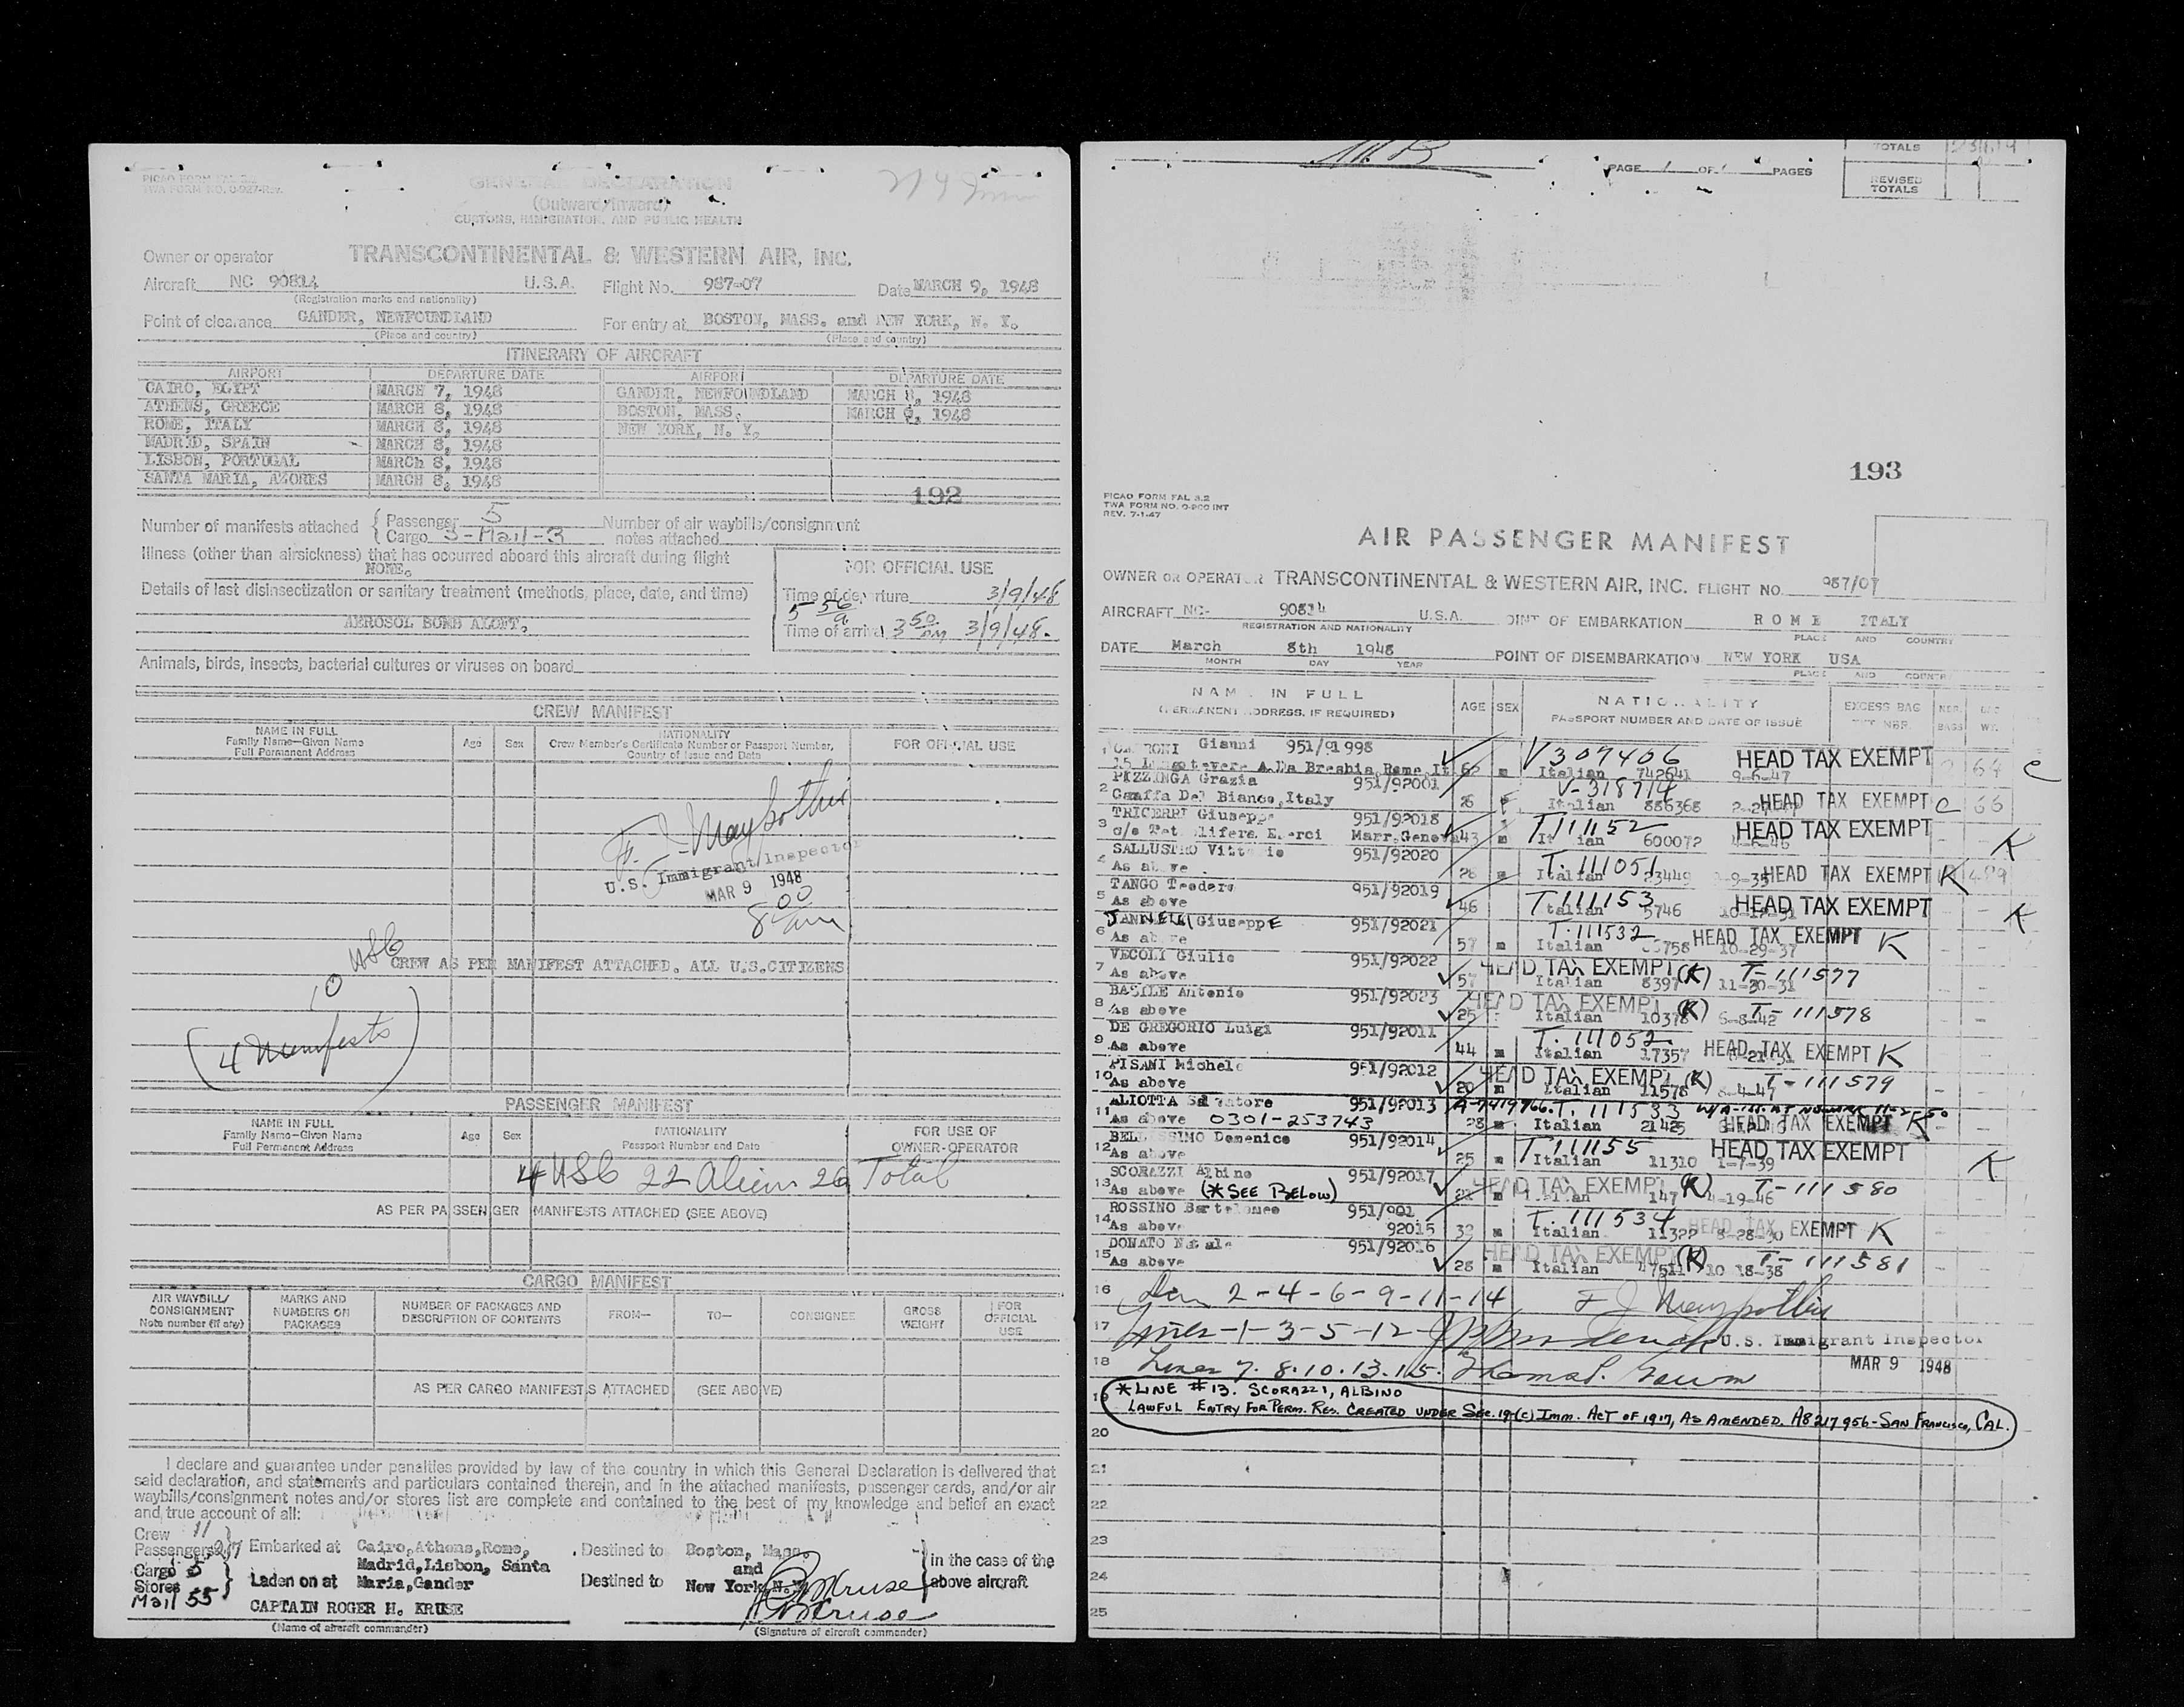 PICAO FORM FAL
TWA FORM NO. O-927-Rev.
GENERAL DECLARATION
(Outward/Inward)
CUSTOMS, IMMIGRATION, AND PUBLIC HEALTH
Owner or operator TRANSCONTINENTAL & WESTERN AIR, INC.
Aircraft NC 90814 U.S.A. Flight No. 987-07 Date MARCH 9, 1948
(Registration marks and nationality)
Point of clearance GANDER, NEWFOUNDLAND For entry at BOSTON, MASS. and NEW YORK, N. Y.
(Place and country) (Place and country)
ITINERARY OF AIRCRAFT
AIRPORT DEPARTURE DATE AIRPORT DEPARTURE DATE
CAIRO, EGYPT MARCH 7, 1948 GANDER, NEWFOUNDLAND MARCH 8, 1948
ATHENS, GREECE MARCH 8, 1948 BOSTON, MASS. MARCH 9, 1948
ROME, ITALY MARCH 8, 1948 NEW YORK, N. Y.
MADRID, SPAIN MARCH 8, 1948
LISBON, PORTUGAL MARCh 8, 1948
SANTA MARIA, AZORES MARCH 8, 1948
192
Number of manifests attached { Passenger 5 Number of air waybills/consignment
Cargo 3-Mail-3 notes attached
Illness (other than airsickness) that has occurred aboard this aircraft during flight
NONE.
FOR OFFICIAL USE
Details of last disinsectization or sanitary treatment (methods, place, date, and time)
Time of departure 3/9/48
5 56 a
AEROSOL BOMB ALOFT.
Time of arrival 3 50 PM 3/9/48.
Animals, birds, insects, bacterial cultures or viruses on board
CREW MANIFEST
NAME IN FULL
Family Name—Given Name
Full Permanent Address
Age Sex
NATIONALITY
Crew Member's Certificate Number or Passport Number,
Country of Issue and Date
FOR OFFICIAL USE
U.S. Immigrant Inspector
MAR 9 1948
8 00 am
USC
CREW AS PER MANIFEST ATTACHED. ALL U.S.CITIZENS
(4 Manifests)
PASSENGER MANIFEST
NAME IN FULL
Family Name—Given Name
Full Permanent Address
Age Sex
NATIONALITY
Passport Number and Date
FOR USE OF
OWNER-OPERATOR
4 USC 22 Alien 26 Total
AS PER PASSENGER MANIFESTS ATTACHED (SEE ABOVE)
CARGO MANIFEST
AIR WAYBILL/
CONSIGNMENT
Note number (if any)
MARKS AND
NUMBERS ON
PACKAGES
NUMBER OF PACKAGES AND
DESCRIPTION OF CONTENTS
FROM— TO— CONSIGNEE
GROSS
WEIGHT
FOR
OFFICIAL
USE
AS PER CARGO MANIFESTS ATTACHED (SEE ABOVE)
I declare and guarantee under penalties provided by law of the country in which this General Declaration is delivered that
said declaration, and statements and particulars contained therein, and in the attached manifests, passenger cards, and/or air
waybills/consignment notes and/or stores list are complete and contained to the best of my knowledge and belief an exact
and true account of all:
Crew 11
Passengers Embarked at Cairo,Athens,Rome, Destined to Boston, Mass. in the case of the
Cargo 5 Madrid,Lisbon, Santa and
Stores Laden on at Maria,Gander Destined to New York,N.Y. above aircraft
Mail 55 CAPTAIN ROGER H. KRUSE
(Name of aircraft commander) (Signature of aircraft commander)
PAGE 1 OF 1 PAGES
TOTALS
REVISED
TOTALS
193
PICAO FORM FAL 3.2
TWA FORM NO. O-900 INT
REV. 7-1-47
AIR PASSENGER MANIFEST
OWNER OR OPERATOR TRANSCONTINENTAL & WESTERN AIR, INC. FLIGHT NO. 987/07
AIRCRAFT NC- 90814 U.S.A. POINT OF EMBARKATION ROME ITALY
REGISTRATION AND NATIONALITY PLACE AND COUNTRY
DATE March 8th 1948 POINT OF DISEMBARKATION NEW YORK USA
MONTH DAY YEAR PLACE AND COUNTRY
NAME IN FULL
(PERMANENT ADDRESS, IF REQUIRED)
AGE SEX
NATIONALITY
PASSPORT NUMBER AND DATE OF ISSUE
EXCESS BAG
TKT NBR
NBR.
BAGS
WT.
1 Gianni 951/91998 V309406 HEAD TAX EXEMPT
A.Da Breshia,Rome,It 62 m Italian 742641 9-6-47 64 C
2 PIZZINGA Grazia 951/92001 V-318714 HEAD TAX EXEMPT C
Caraffa Del Bianco,Italy 26 f Italian 886368 66
3 TRICERRI Giuseppe 951/92018 T111152 HEAD TAX EXEMPT
Marr,Genova 43 m Italian 600072 K
4 SALLUSTRO Vittorio 951/92020 T.111051 HEAD TAX EXEMPT K
As above 28 m Italian 23449
5 TANGO Teodoro 951/92019 T111153 HEAD TAX EXEMPT
As above 46 Italian 5746 K
6 JANNELLI GiuseppE 951/92021 T.111532 HEAD TAX EXEMPT K
As above 57 m Italian 10-29-37
7 VECOLI Giulio 951/92022 HEAD TAX EXEMPT (K) T-111577
As above 57 Italian 8397 11-30-31
8 BASILE Antonio 951/92023 HEAD TAX EXEMPT (K) T-111578
As above 25 Italian 10378 6-8-42
9 DE GREGORIO Luigi 951/92011 T.111052 HEAD TAX EXEMPT K
As above 44 m Italian 17357
10 PISANI Michele 951/92012 HEAD TAX EXEMPT (K) T-111579
As above 20 m Italian 11578 8-4-47
11 ALIOTTA Salvatore 951/92013 A-7419766. T.111533
As above 0301-253743 28 m Italian 21425 HEAD TAX EXEMPT K
12 BELLISSIMO Domenico 951/92014 T111155 HEAD TAX EXEMPT
As above 25 m Italian 11310 1-7-39 K
13 SCORAZZI Albino 951/92017 HEAD TAX EXEMPT (K) T-111580
As above (*SEE BELOW) m Italian 147 4-19-46
14 ROSSINO Bartolomeo 951/901 T.111534 HEAD TAX EXEMPT K
As above 92015 32 m Italian 11322 8-28-30
15 DONATO Natale 951/92016 HEAD TAX EXEMPT (K) T-111581
As above 28 m Italian 47511 10 18-38
16 2-4-6-9-11-14
17 Lines-1-3-5-12- U.S. Immigrant Inspector
18 Lines 7.8.10.13.15. MAR 9 1948
19 *LINE #13. SCORAZZI, ALBINO
LAWFUL ENTRY FOR PERM. RES. CREATED UNDER SEC. 19(c) IMM. ACT OF 1917, AS AMENDED. A8217956-SAN FRANCISCO, CAL.
20
21
22
23
24
25